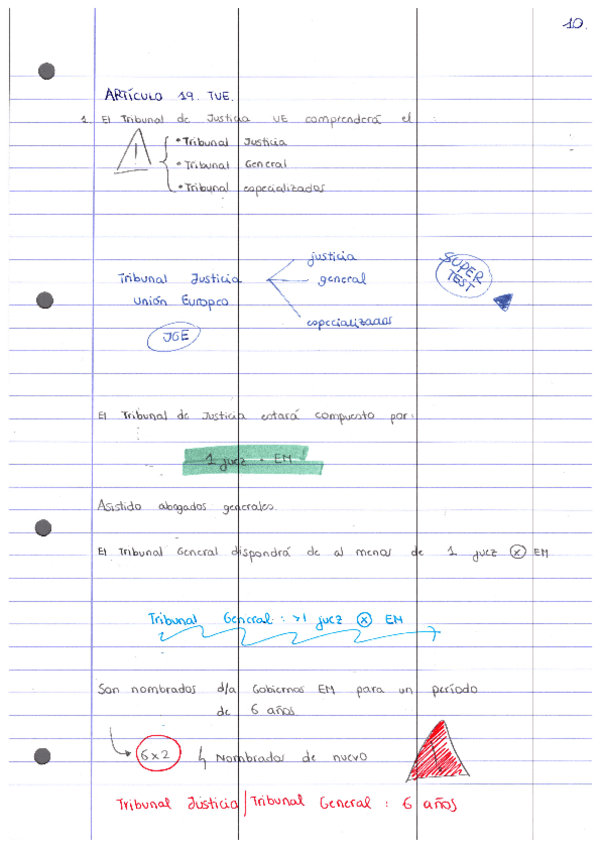 10.
ARTÍCULO 19. TUE.
1. El Tribunal de Justicia UE comprenderá el :
• Tribunal Justicia
• Tribunal General
• Tribunal especializados
justicia
Tribunal Justicia general
Unión Europea
especializadas
SUPER TEST
JGE
El Tribunal de Justicia estará compuesto por:
1 juez · EM
Asistido abogados generales.
El Tribunal General dispondrá de al menos de 1 juez ⓧ EM
Tribunal General : >1 juez ⓧ EM
Son nombrados d/a Gobiernos EM para un período
de 6 años
6x2 ↳ Nombrados de nuevo
Tribunal Justicia / Tribunal General : 6 años